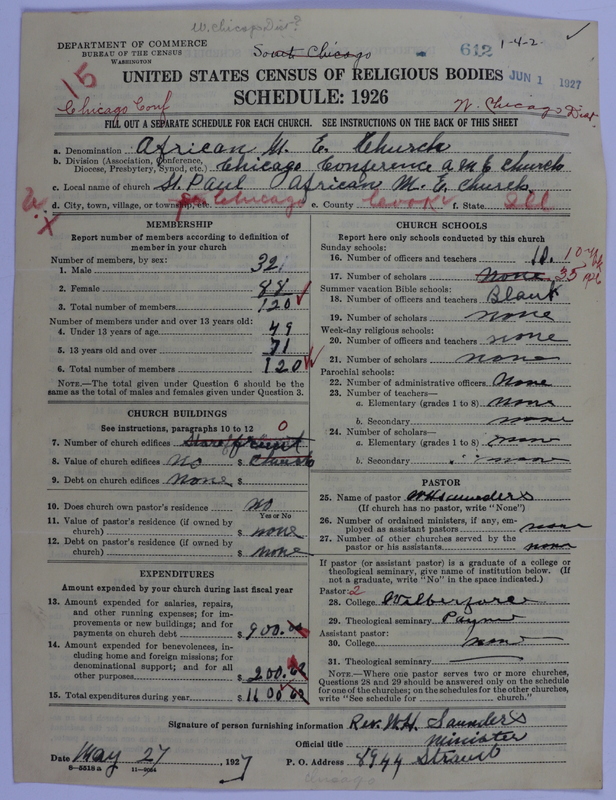 W. Chicago Dist?
DEPARTMENT OF COMMERCE
BUREAU OF THE CENSUS
WASHINGTON
South Chicago
612
1-4-2
15
UNITED STATES CENSUS OF RELIGIOUS BODIES
JUN 1 1927
SCHEDULE: 1926
Chicago Conf
W. Chicago Dist
FILL OUT A SEPARATE SCHEDULE FOR EACH CHURCH. SEE INSTRUCTIONS ON THE BACK OF THIS SHEET
a. Denomination African M. E. Church
b. Division (Association, Conference, Diocese, Presbytery, Synod, etc.) Chicago Conference A M E Church
c. Local name of church St. Paul African M. E. Church
d. City, town, village, or township, etc. So Chicago e. County Cook f. State Ill
MEMBERSHIP
Report number of members according to definition of
member in your church
Number of members, by sex:
1. Male 32
2. Female 88
3. Total number of members 120
Number of members under and over 13 years old:
4. Under 13 years of age 49
5. 13 years old and over 71
6. Total number of members 120
NOTE.—The total given under Question 6 should be the
same as the total of males and females given under Question 3.
CHURCH BUILDINGS
See instructions, paragraphs 10 to 12
0
7. Number of church edifices Store front
8. Value of church edifices No $ Church
9. Debt on church edifices None $
10. Does church own pastor's residence No
Yes or No
11. Value of pastor's residence (if owned by
church) $ none
12. Debt on pastor's residence (if owned by
church) $ none
EXPENDITURES
Amount expended by your church during last fiscal year
13. Amount expended for salaries, repairs,
and other running expenses; for improvements
or new buildings; and for
payments on church debt $ 900.00
14. Amount expended for benevolences,
including home and foreign missions; for
denominational support; and for all
other purposes $ 200.00
15. Total expenditures during year $ 1100 00
CHURCH SCHOOLS
Report here only schools conducted by this church
Sunday schools:
16. Number of officers and teachers 10. 10
17. Number of scholars None 35 1926
Summer vacation Bible schools:
18. Number of officers and teachers Blank
19. Number of scholars none
Week-day religious schools:
20. Number of officers and teachers none
21. Number of scholars none
Parochial schools:
22. Number of administrative officers None
23. Number of teachers—
a. Elementary (grades 1 to 8) none
b. Secondary none
24. Number of scholars—
a. Elementary (grades 1 to 8) none
b. Secondary none
PASTOR
25. Name of pastor W H Saunders
(If church has no pastor, write "None")
26. Number of ordained ministers, if any, employed
as assistant pastors none
27. Number of other churches served by the
pastor or his assistants none
If pastor (or assistant pastor) is a graduate of a college or
theological seminary, give name of institution below. (If
not a graduate, write "No" in the space indicated.)
Pastor: 2
28. College Wilberforce
29. Theological seminary Payne
Assistant pastor:
30. College none
31. Theological seminary
NOTE.—Where one pastor serves two or more churches,
Questions 28 and 29 should be answered only on the schedule
for one of the churches; on the schedules for the other churches,
write "See schedule for ........ church."
Signature of person furnishing information Rev. W. H. Saunders
Official title Minister
Date May 27, 1927 P. O. Address 8944 Strand
8—5318 a 11—9064
Chicago